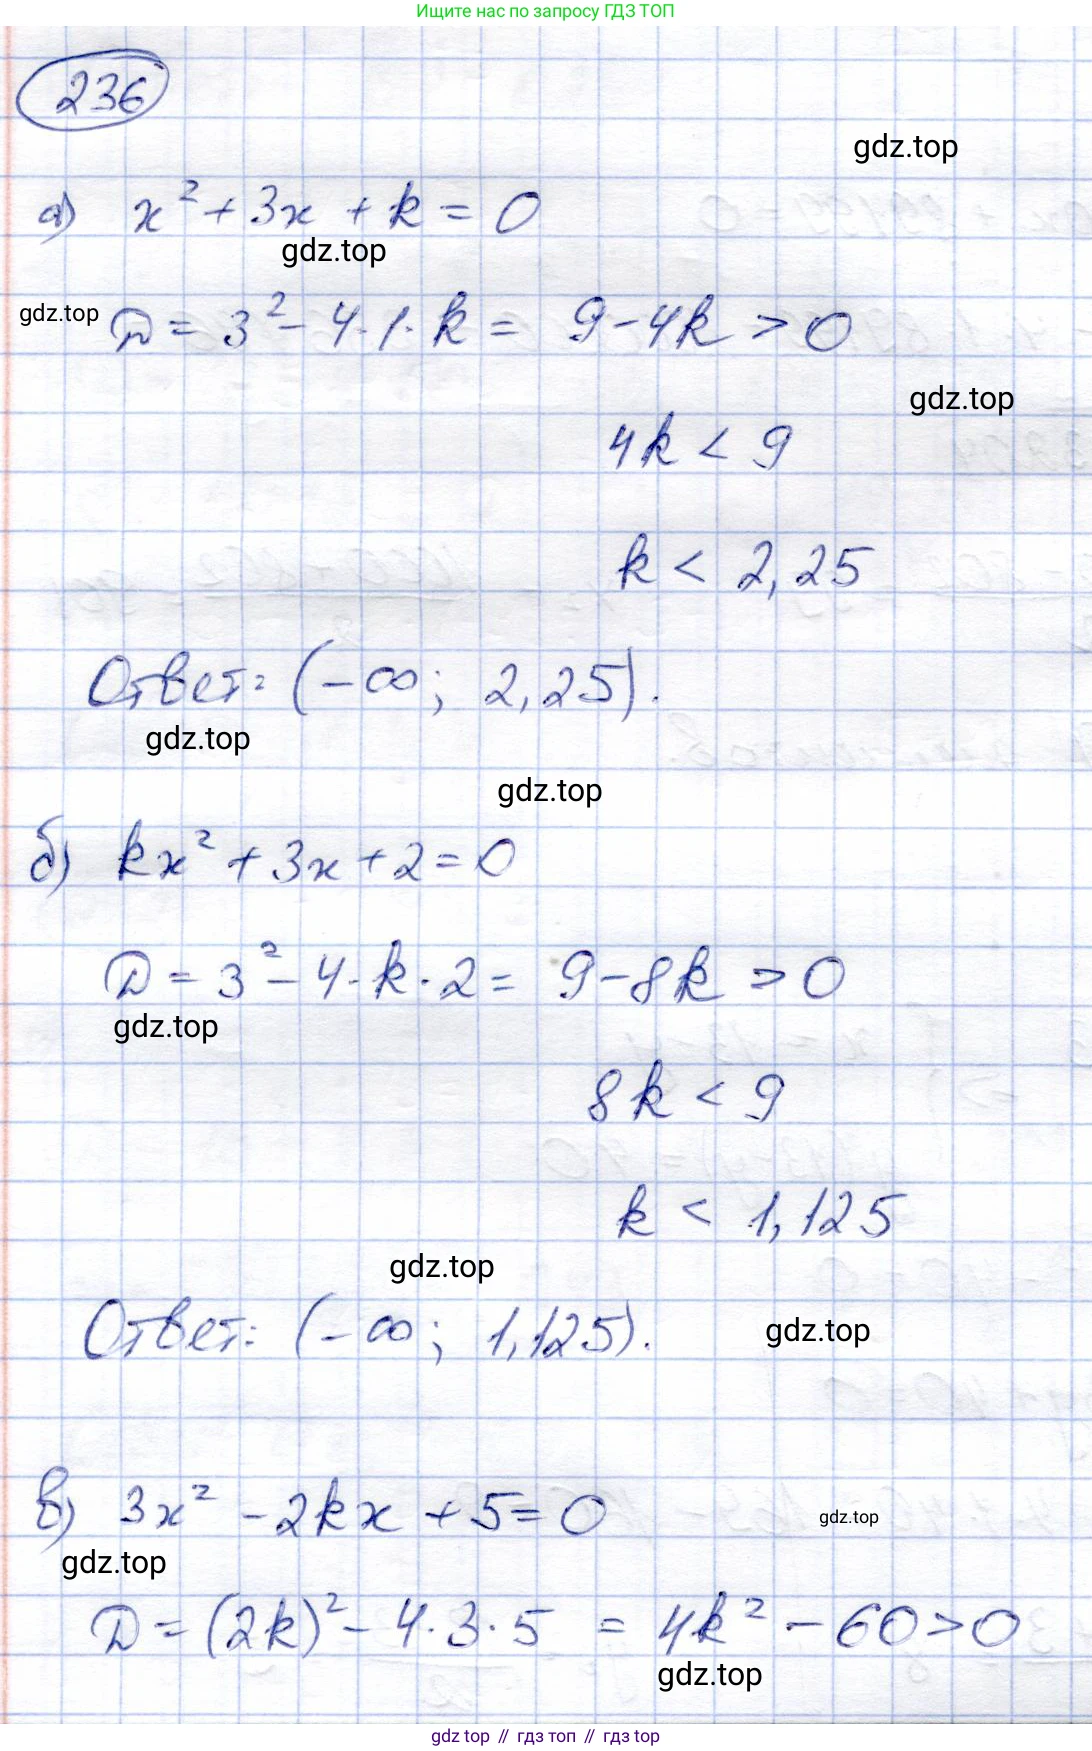 Ищите нас по запросу ГДЗ ТОП
236
gdz.top
а) x² + 3x + k = 0
gdz.top
gdz.top
D = 3² - 4·1·k = 9 - 4k > 0
gdz.top
4k < 9
k < 2,25
Ответ: (-∞; 2,25).
gdz.top
gdz.top
б) kx² + 3x + 2 = 0
D = 3² - 4·k·2 = 9 - 8k > 0
gdz.top
8k < 9
k < 1,125
gdz.top
Ответ: (-∞; 1,125).
gdz.top
в) 3x² - 2kx + 5 = 0
gdz.top
gdz.top
D = (2k)² - 4·3·5 = 4k² - 60 > 0
gdz.top
gdz top // гдз топ // гдз top